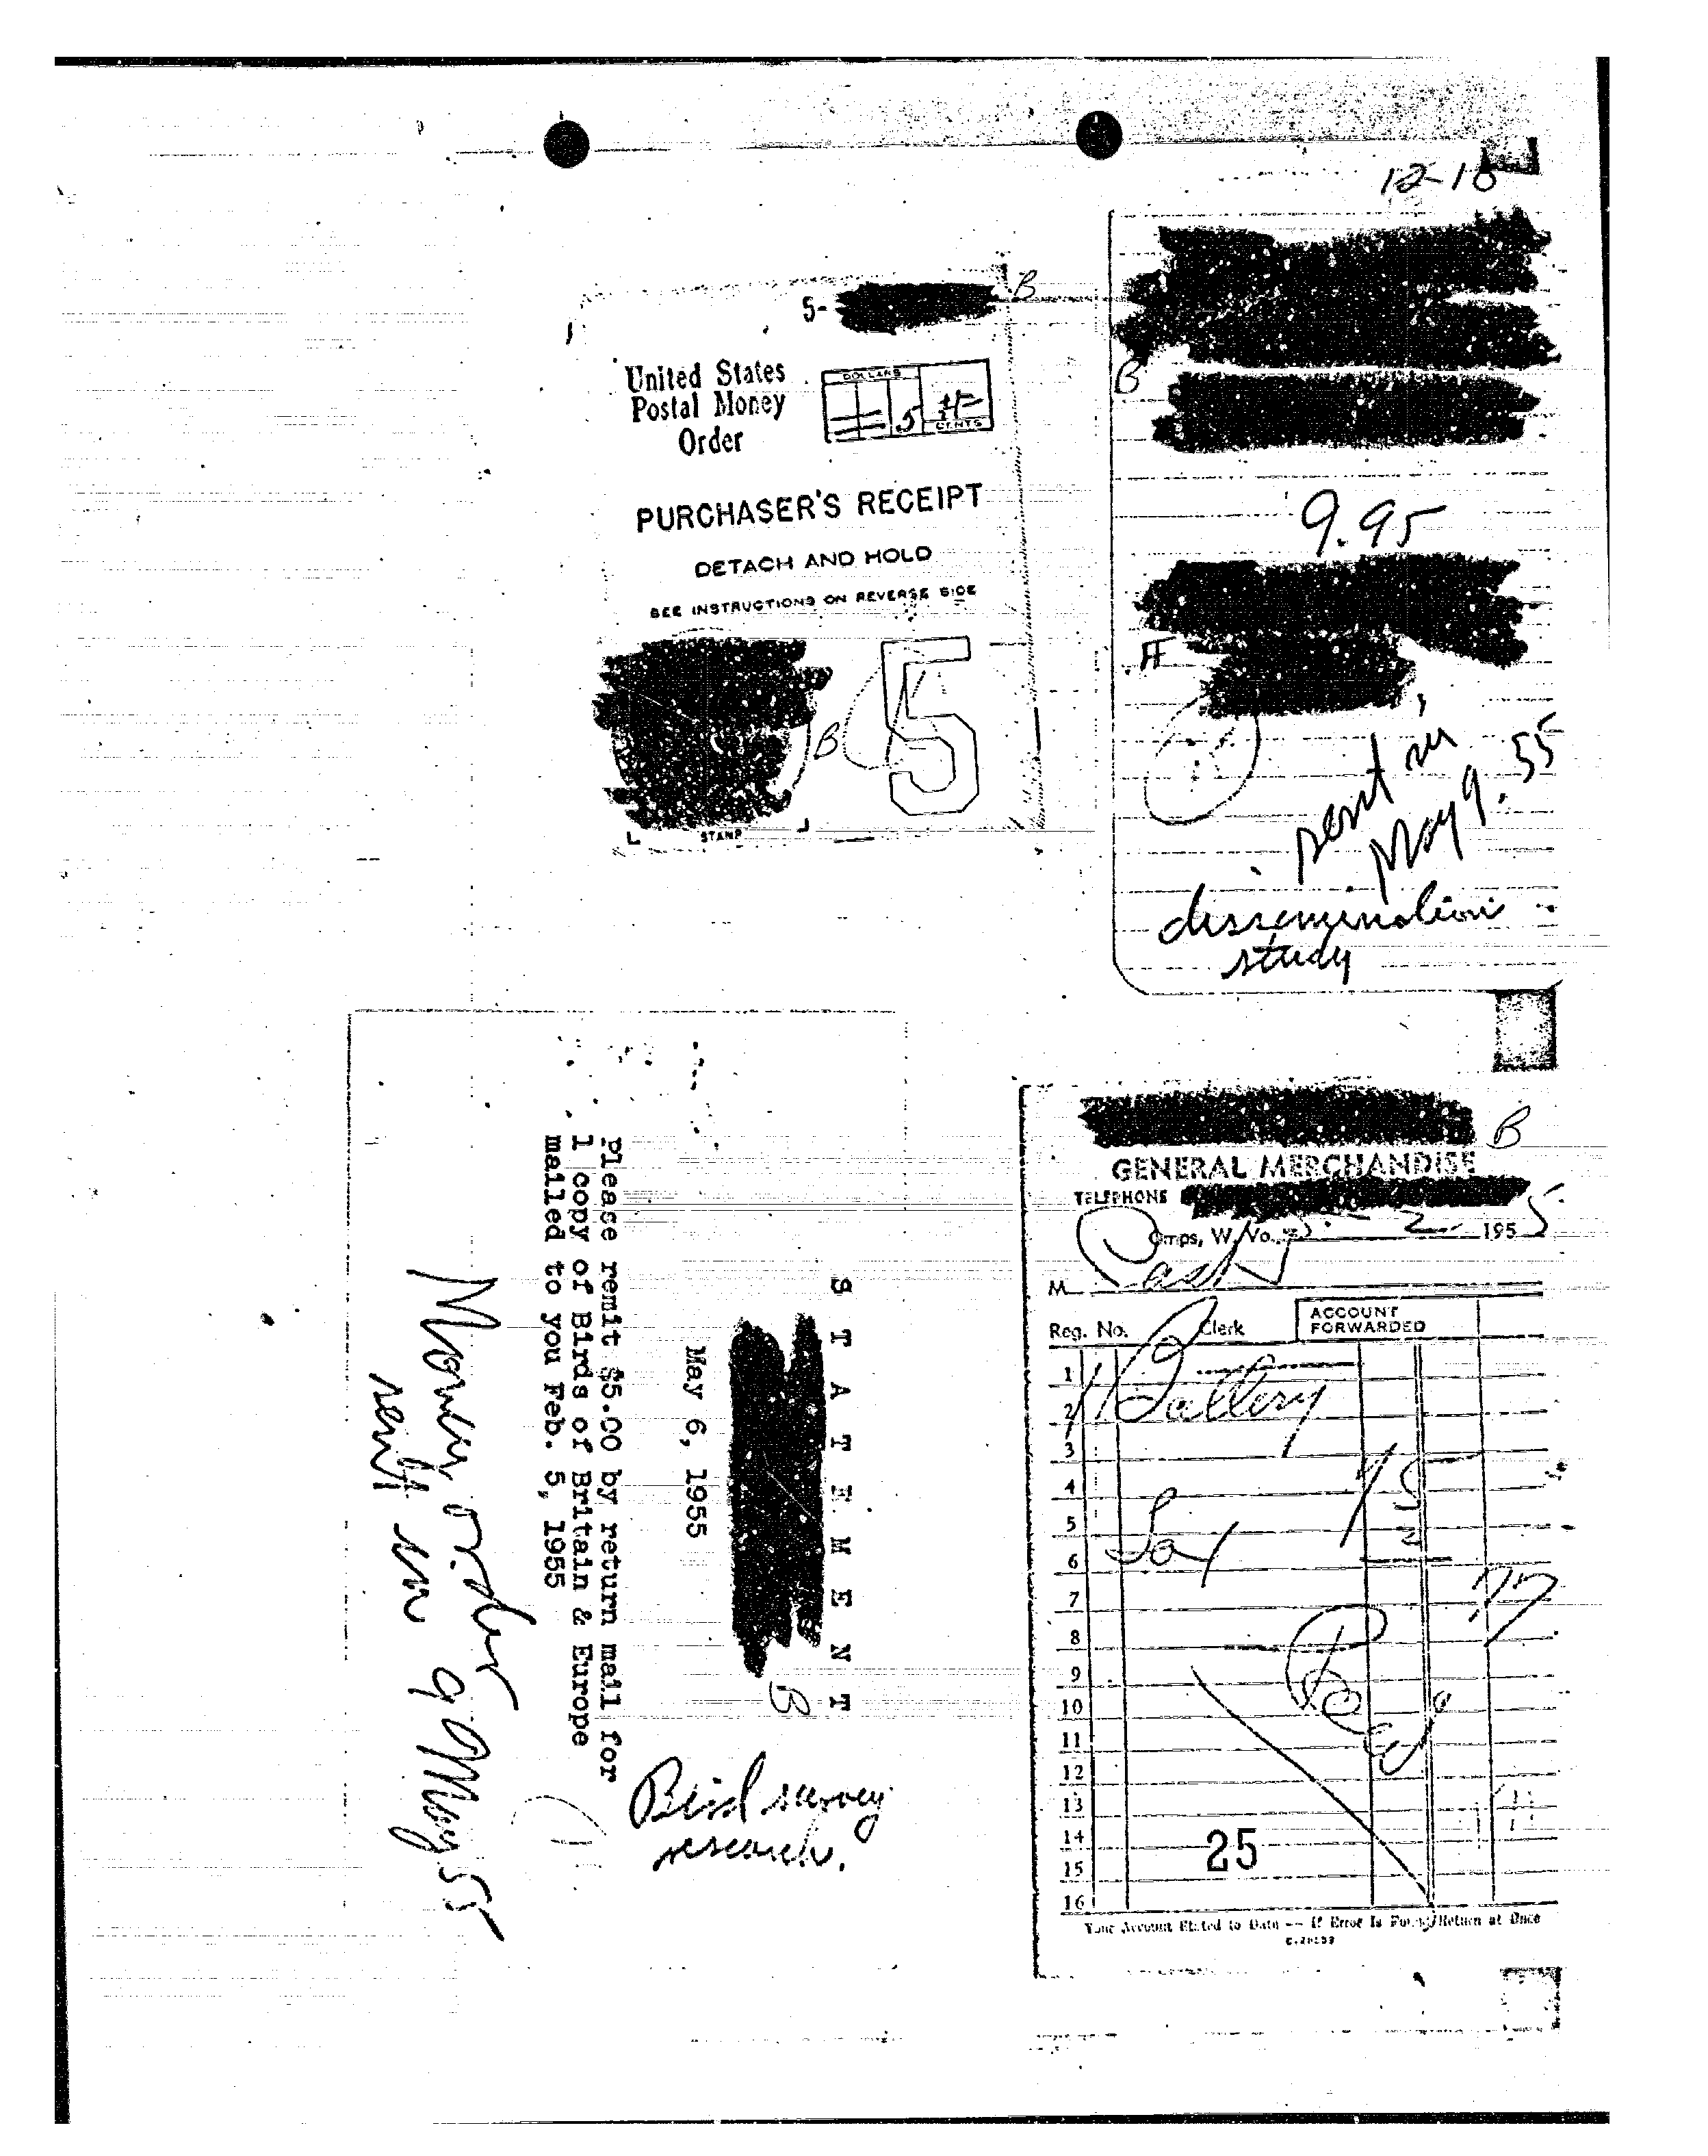 12-16
5-
B
United States
Postal Money
Order
DOLLARS
5
CENTS
PURCHASER'S RECEIPT
DETACH AND HOLD
SEE INSTRUCTIONS ON REVERSE SIDE
B
5
STAMP
B
9.95
sent in
May 9. 55
dissemination
study
STATEMENT
B
May 6, 1955
Please remit $5.00 by return mail for
1 copy of Birds of Britain & Europe
mailed to you Feb. 5, 1955
Money order
sent in 9 May 55
Bird survey
research.
B
GENERAL MERCHANDISE
TELEPHONE
Omps, W. Va. 2 1955
M Cash
Reg. No. Clerk ACCOUNT FORWARDED
1
2 1 Battery
3
4 75
5
6 Tax 2
7 77
8
9
10
11
12
13
14
15
16
25
Your Account Stated to Date -- If Error Is Found Return at Once